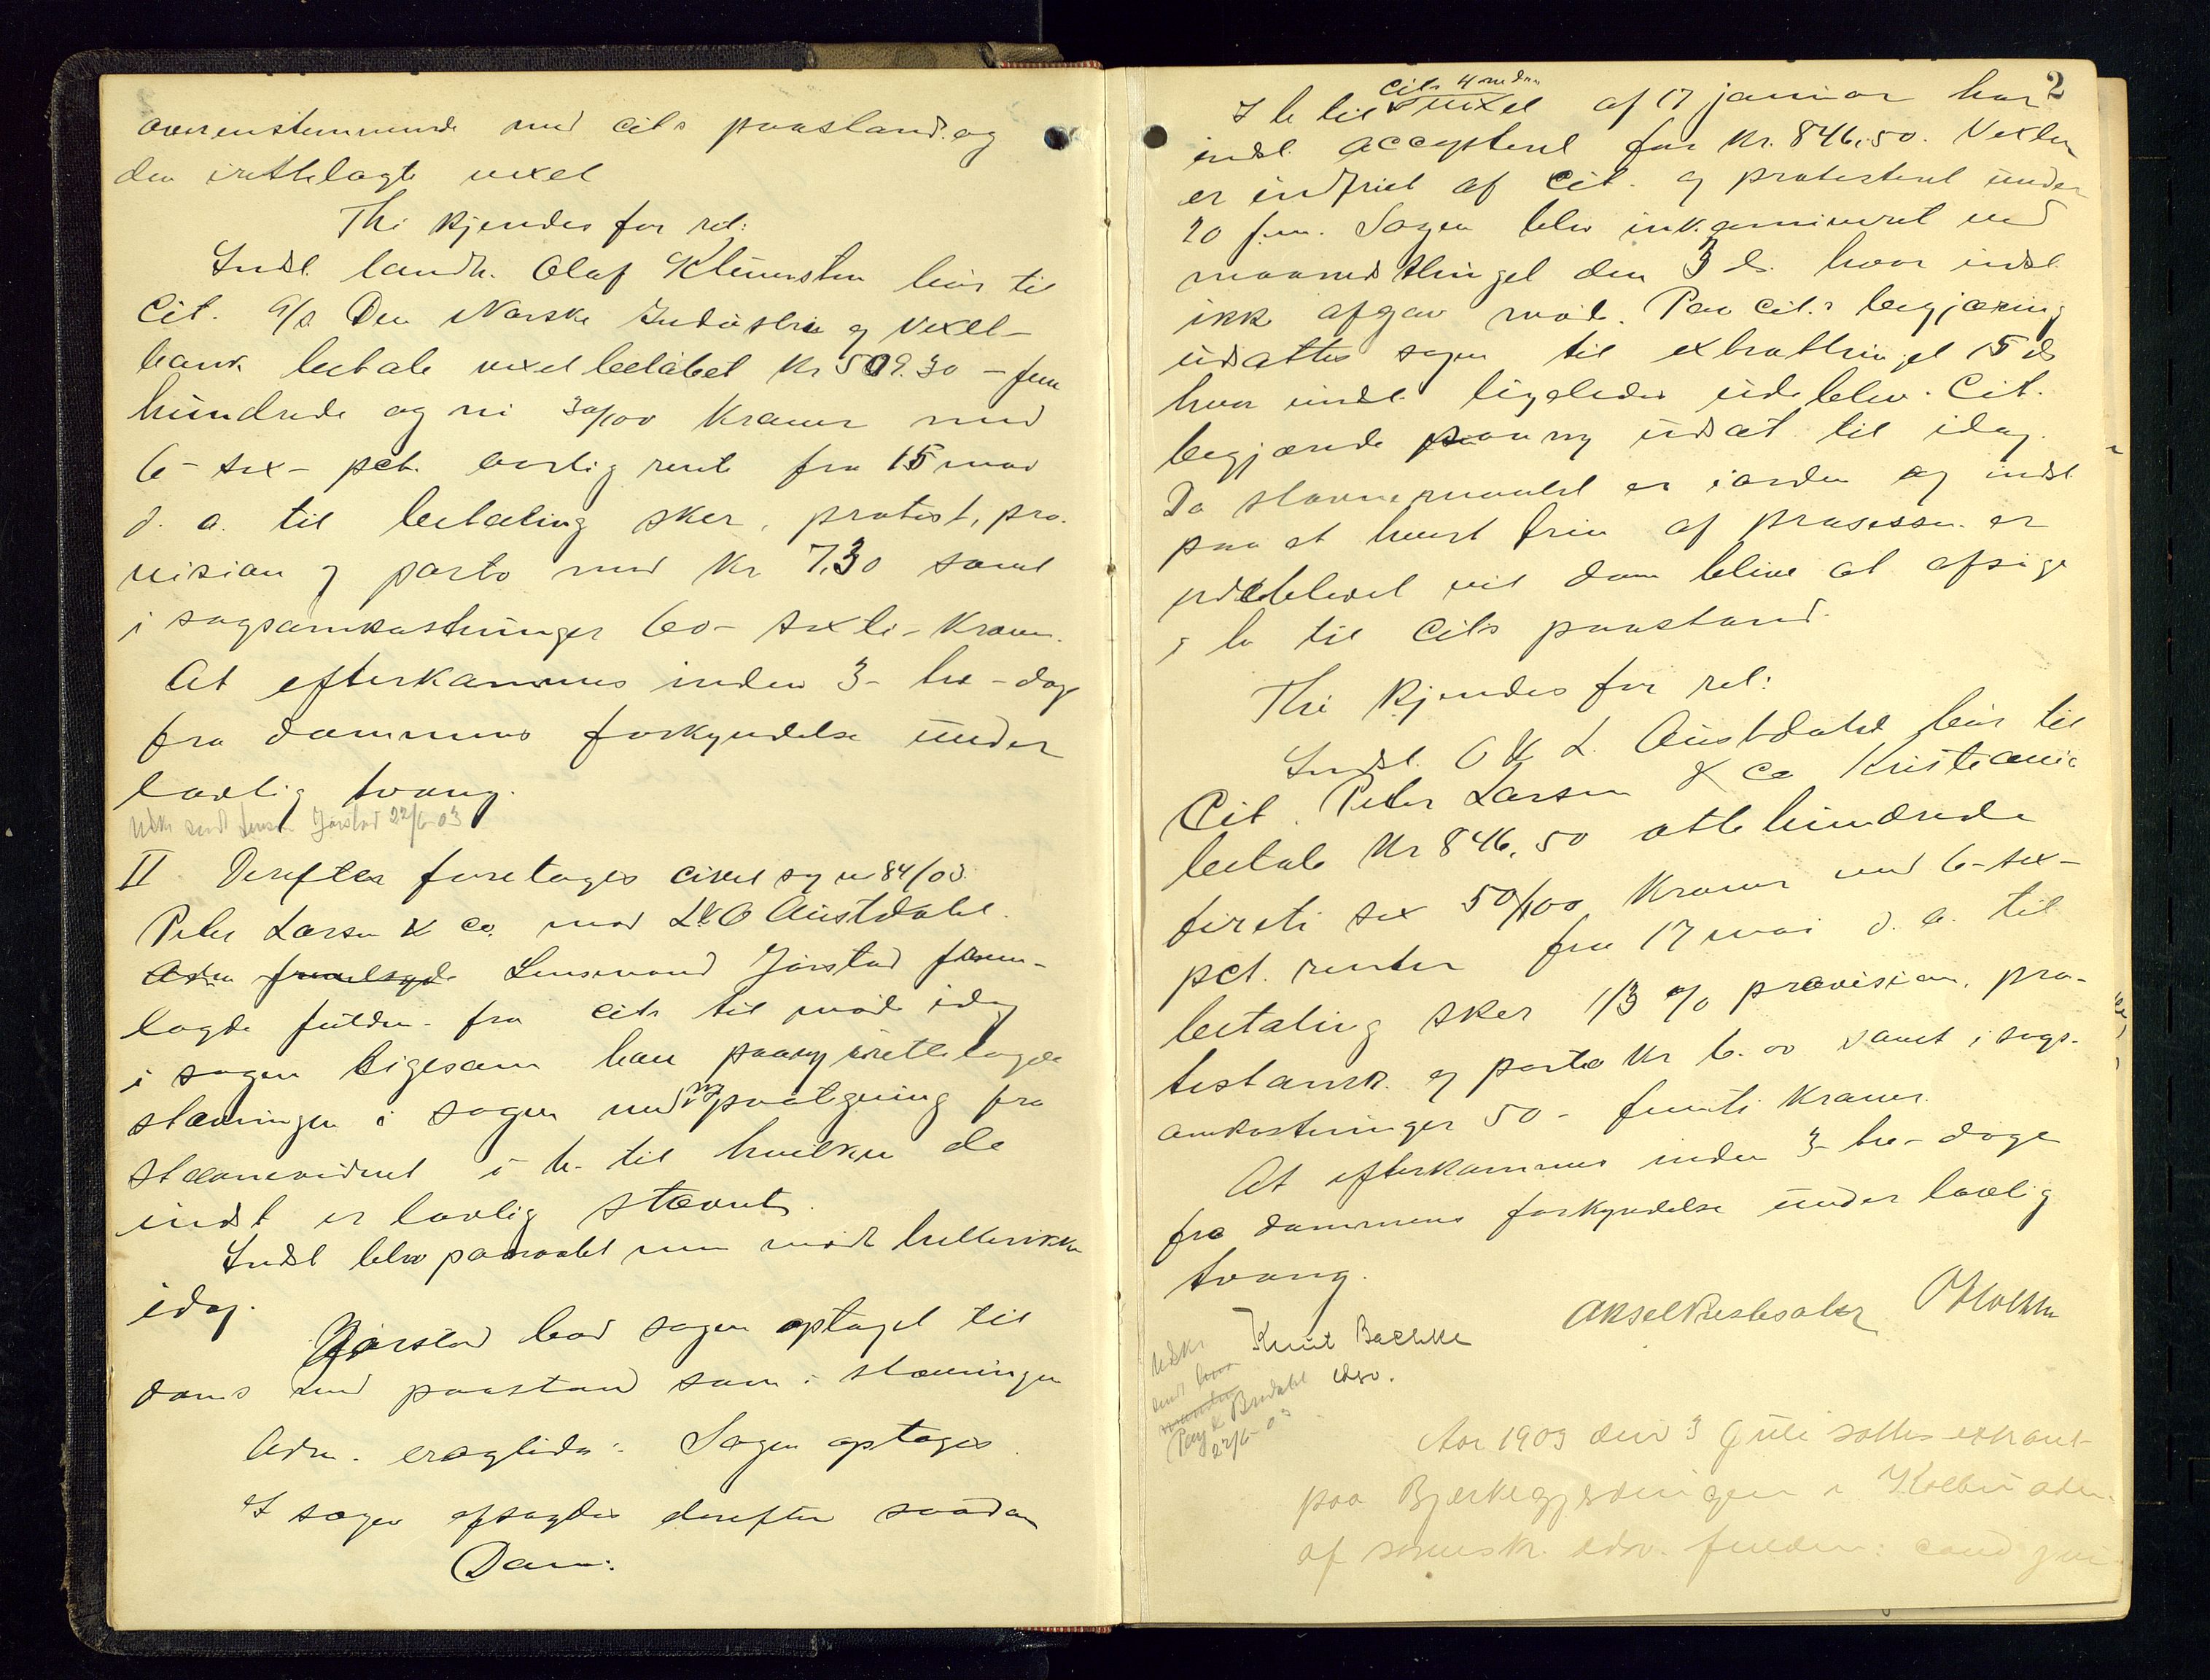 overensstemmende med cits paastand og
den irettelagte vexel
Thi kjendes for ret:
Indst. landh. Olaf Klunesten bør til
Cit. A/S Den Norske Industri og Vexel-
bank betale vexelbeløbet Kr 509.30 - fem
hundrede og ni 30/100 Kroner med
6 - sex - pct. aarlig rente fra 15 mai
d. a. til betaling sker, protest, pro-
vision og porto med Kr 7,30 samt
i sagsomkostninger 60 - sexti - Kroner.
At efterkommes inden 3 - tre - dage
fra dommens forkyndelse under
lovlig tvang.
Udskr sendt Lensm Jørstad 22/6 03
II Derefter foretoges civil sag no 84/03
Peter Larsen & Co. mod L & O Austdahl.
Adm fremlagde Lensmand Jørstad frem-
lagde fuldm. fra cit. til møde idag
i sagen ligesom han paany irettelagde
stævningen i sagen med ny paategning fra
stævnevidnet i h. til hvilken de
indst er lovlig stævnt.
Indst blev paaraabt men mødte heller ikke
idag.
Jørstad bad sagen optaget til
doms med paastand som i stævningen
Adm. eragtede: Sagen optages.
I sagen afsagdes derefter saadan
Dom:
2
I h. til cits 4 mdrs vexel af 17 januar har
indst. accepteret for Kr. 846,50. Vexlen
er indfriet af Cit. og protesteret under
20 f.m. Sagen blev inkamineret ved
maanedsthinget den 3 ds. hvor indst
ikke afgav møde. Paa cit.s begjæring
udsattes sagen til extrathinget 15 ds
hvor indst ligeledes udeblev. Cit.
begjærede paany udsat til idag.
Da stævnemaalet er iorden og indst
paa et hvert trin af prosessen er
udeblevet vil dom blive at afsige
i h. til Cits paastand.
Thi kjendes for ret:
Indst. O & L Austdahl bør til
Cit. Peter Larsen & Co Kristiania
betale Kr 846,50 otte hundrede
førti sex 50/100 Kroner med 6 - sex -
pct. renter fra 17 mai d. a. til
betaling sker 1/3 % provision, pro-
testomk. og porto Kr 6.00 samt i sags-
omkostninger 50 - femti Kroner.
At efterkommes inden 3 - tre - dage
fra dommens forkyndelse under lovlig
tvang.
Aksel Prestesæter O Holthe
Knut Bachke
edsv.
Udskr
sendt
Pay & Bredahl
22/6 03
Aar 1903 den 3 Juli sattes extraret
paa Bjerkegjerdingen i Kolbu
af sorensk. edsv. fuldm: cand jur